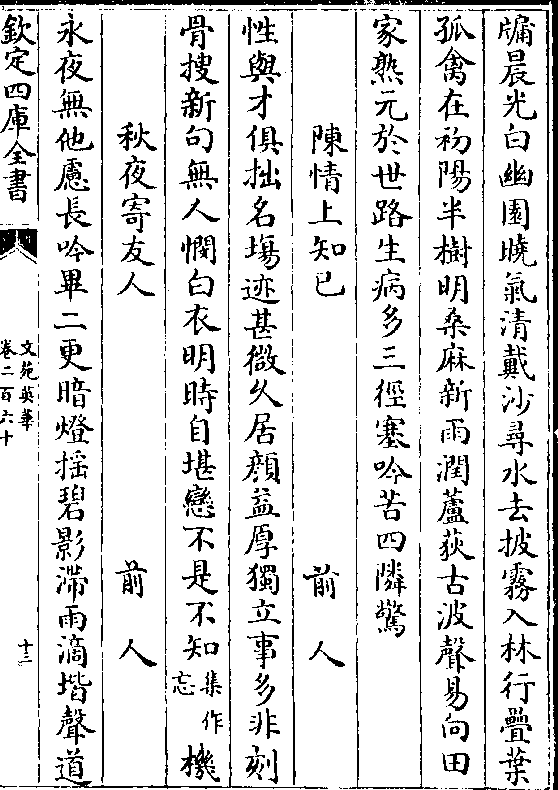 牖晨光白幽園曉氣清戴沙尋水去披霧入林行疊葉
孤禽在初陽半樹明桑麻新雨潤蘆荻古波聲易向田
家熟元於世路生病多三徑塞吟苦四隣驚
陳情上知已 前人
性與才俱拙名塲迹甚微久居顔益厚獨立事多非刻
骨搜新句無人憫白衣明時自堪戀不是不知集作忘機
秋夜寄友人 前人
永夜無他慮長吟畢二更暗燈揺碧影滯雨滴堦聲道
欽定四庫全書
文苑英華
卷二百六十
十三